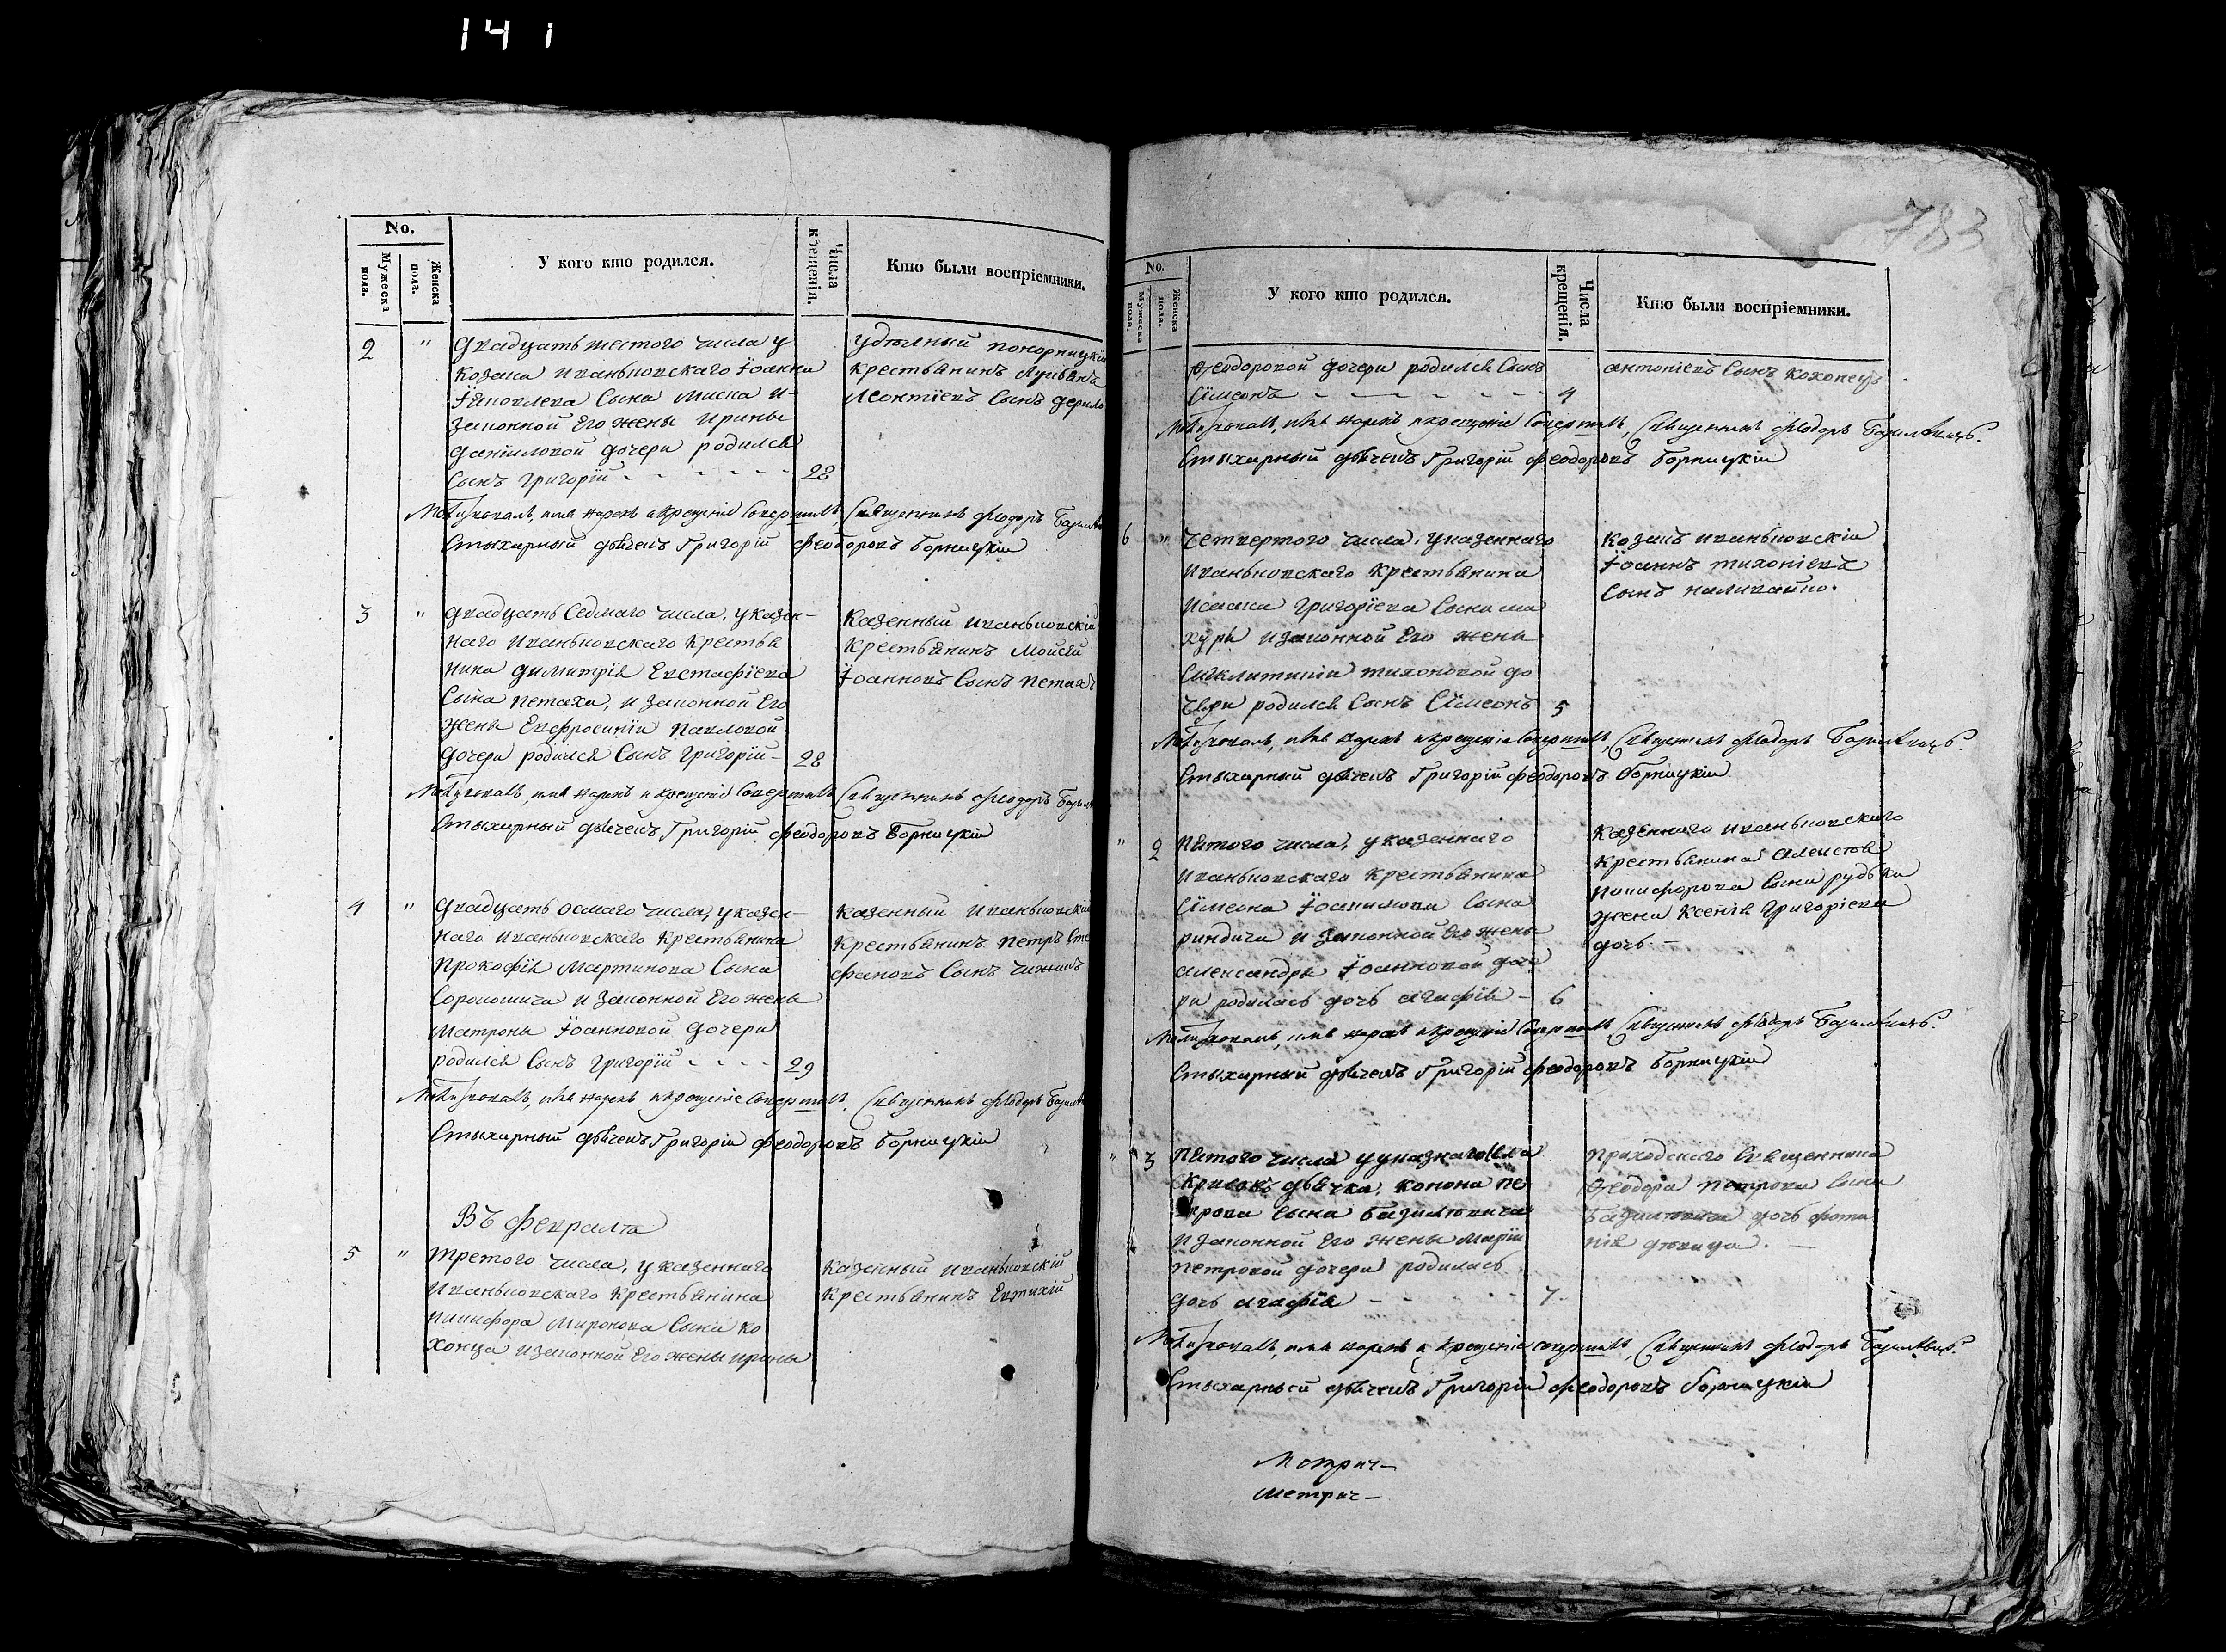 141
783
No.
Мужеска пола.
Женска пола.
У кого кто родился.
Числа крещенія.
Кто были воспріемники.
2 "
Двадцать шестого числа у
козака иваньковскаго Іоанна
Іяковлева сына миска и
законной его жены ирины
Даніиловой дочери родился
сынъ григорій - - - - - 28
удѣльный понорницкій
крестьянинъ
Леонтіевъ сынъ
Молитвовалъ, имя нарекъ и крещеніе совершилъ, Священникъ Ѳеодоръ
Стихарный дьячекъ Григорій Феодоровъ Борницкій
3 "
двадцать седмаго числа, у казен-
наго иваньковскаго крестья
нина димитрія Евстафіева
сына петаха, и законной его
жены Евфросиніи Павловой
дочери родился сынъ григорій - 28
Казенный иваньковскій
крестьянинъ Мойсей
Іоанновъ сынъ петахъ
Молитвовалъ, имя нарекъ и крещеніе совершилъ Священникъ Ѳеодоръ
Стихарный дьячекъ Григорій Феодоровъ Борницкій
4 "
двадцать осмаго числа, у казен-
наго иваньковскаго крестьянина
Прокофія Мартинова сына
Сорокошича и законной его жены
Матроны Іоанновой дочери
родился сынъ григорій - - - - 29
казенный иваньковскій
крестьянинъ петръ Сте
фановъ сынъ чижикъ
Молитвовалъ, имя нарекъ и крещеніе совершилъ, Священникъ Ѳеодоръ
Стихарный дьячекъ Григорій Феодоровъ Борницкій
Въ февралѣ
5 "
третого числа, у казеннаго
Иваньковскаго крестьянина
никифора Миронова сына ко
хонца и законной его жены ирины
казенный иваньковскій
крестьянинъ Евтихій
No.
Мужеска пола.
Женска пола.
У кого кто родился.
Числа крещенія.
Кто были воспріемники.
Ѳеодоровой дочери родился сынъ
Сімеонъ - - - - - - 4
антоніевъ сынъ кохонецъ
Молитвовалъ, имя нарекъ и крещеніе совершилъ, Священникъ Ѳеодоръ Базилевичъ.
Стихарный дьячекъ Григорій Феодоровъ Борницкій
6 "
четвертого числа, у казеннаго
иваньковскаго крестьянина
Исаака григоріева сына ма
хури и законной его жены
Сигклитикіи тихоновой до
чери родился сынъ Сімеонъ 5
козакъ иваньковскій
Іоаннъ тихоніевъ
сынъ наливайко.
Молитвовалъ, имя нарекъ и крещеніе совершилъ, Священникъ Ѳеодоръ Базилевичъ.
Стихарный дьячекъ Григорій Феодоровъ Борницкій
" 2
пятого числа, у казеннаго
иваньковскаго крестьянина
Сімеона Іоакимова сына
риндича и законной его жены
александры Іоанновой доче
ри родилась дочь агафія - 6
казеннаго иваньковскаго
крестьянина
никифорова сына рудька
жена Ксенія григоріева
дочь. -
Молитвовалъ, имя нарекъ и крещеніе совершилъ Священникъ Ѳеодоръ Базилевичъ.
Стихарный дьячекъ Григорій Феодоровъ Борницкій
" 3
пятого числа у указнаго села
Крисокъ дьячка, конона пе
трова сына Базилевича
и законной его жены Маріи
Петровой дочери родилась
дочь агафія - - - - - 7.
приходскаго священника
Ѳеодора петрова сына
Базилевича дочь фоти
нія дѣвица. -
Молитвовалъ, имя нарекъ и крещеніе совершилъ, Священникъ Ѳеодоръ Базилевичъ.
Стихарный дьячекъ Григорій Феодоровъ Борницкій
Метрич-
Метрич-